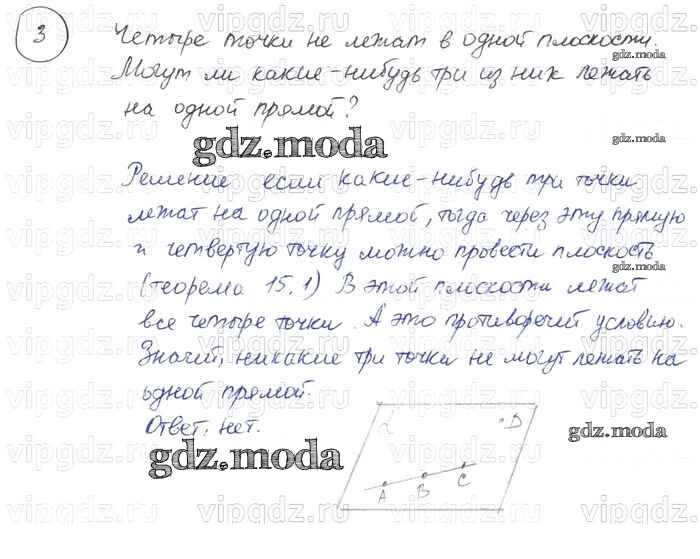 3
Четыре точки не лежат в одной плоскости.
Могут ли какие-нибудь три из них лежать
на одной прямой?
Решение если какие-нибудь три точки
лежат на одной прямой, тогда через эту прямую
и четвертую точку можно провести плоскость
(теорема 15.1) В этой плоскости лежат
все четыре точки. А это противоречий условию.
Значит, никакие три точки не могут лежать на
одной прямой.
Ответ. нет.
α D
A B C
gdz.moda
gdz.moda
gdz.moda
gdz.moda
gdz.moda
gdz.moda
gdz.moda
vipgdz.ru